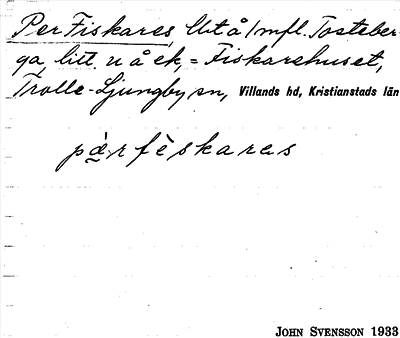 Per Fiskares, llt å 1 mfl. Tosteber-
ga, litt. u å ek, = Fiskarehuset,
Trolle-Ljungby sn, Villands hd, Kristianstads län
pæ̀r fèskaras
JOHN SVENSSON 1933